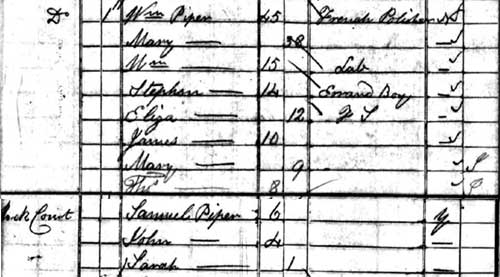 Do 1 Wm Piper 45 French Polisher
Mary — 38
Wm — 15 Lab
Stephen — 14 Errand Boy
Eliza — 12 F S
James — 10
Mary — 9
8
Court Samuel Piper 6 y
John — 4 —
Sarah — 1 —